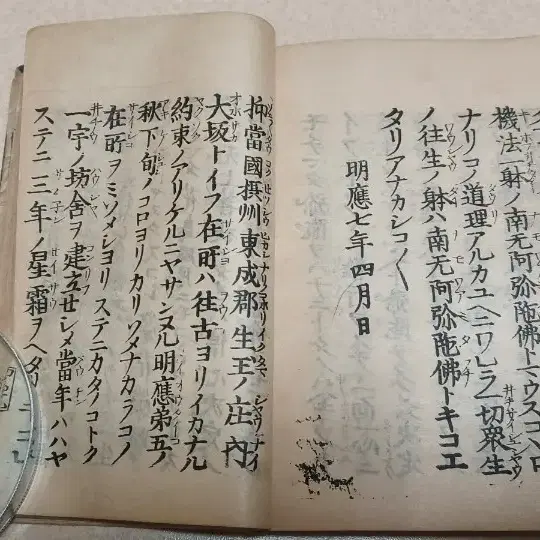 機法一躰ノ南无阿弥陀佛トマウスコヽロ
ナリコノ道理アルカユヘニワレラ一切衆生
ノ往生ノ躰ハ南无阿弥陀佛トキコエ
タリアナカシコ〳〵
明應七年四月日
抑當國摂州東成郡生玉ノ庄內
大坂トイフ在所ハ往古ヨリイカナル
約束ノアリケルニヤサンヌル明應第五ノ
秋下旬ノコロヨリカリソメナカラコノ
在所ヲミソメシヨリステニカタノコトク
一宇ノ坊舎ヲ建立セシメ當年ハハヤ
ステニ三年ノ星霜ヲヘタリ